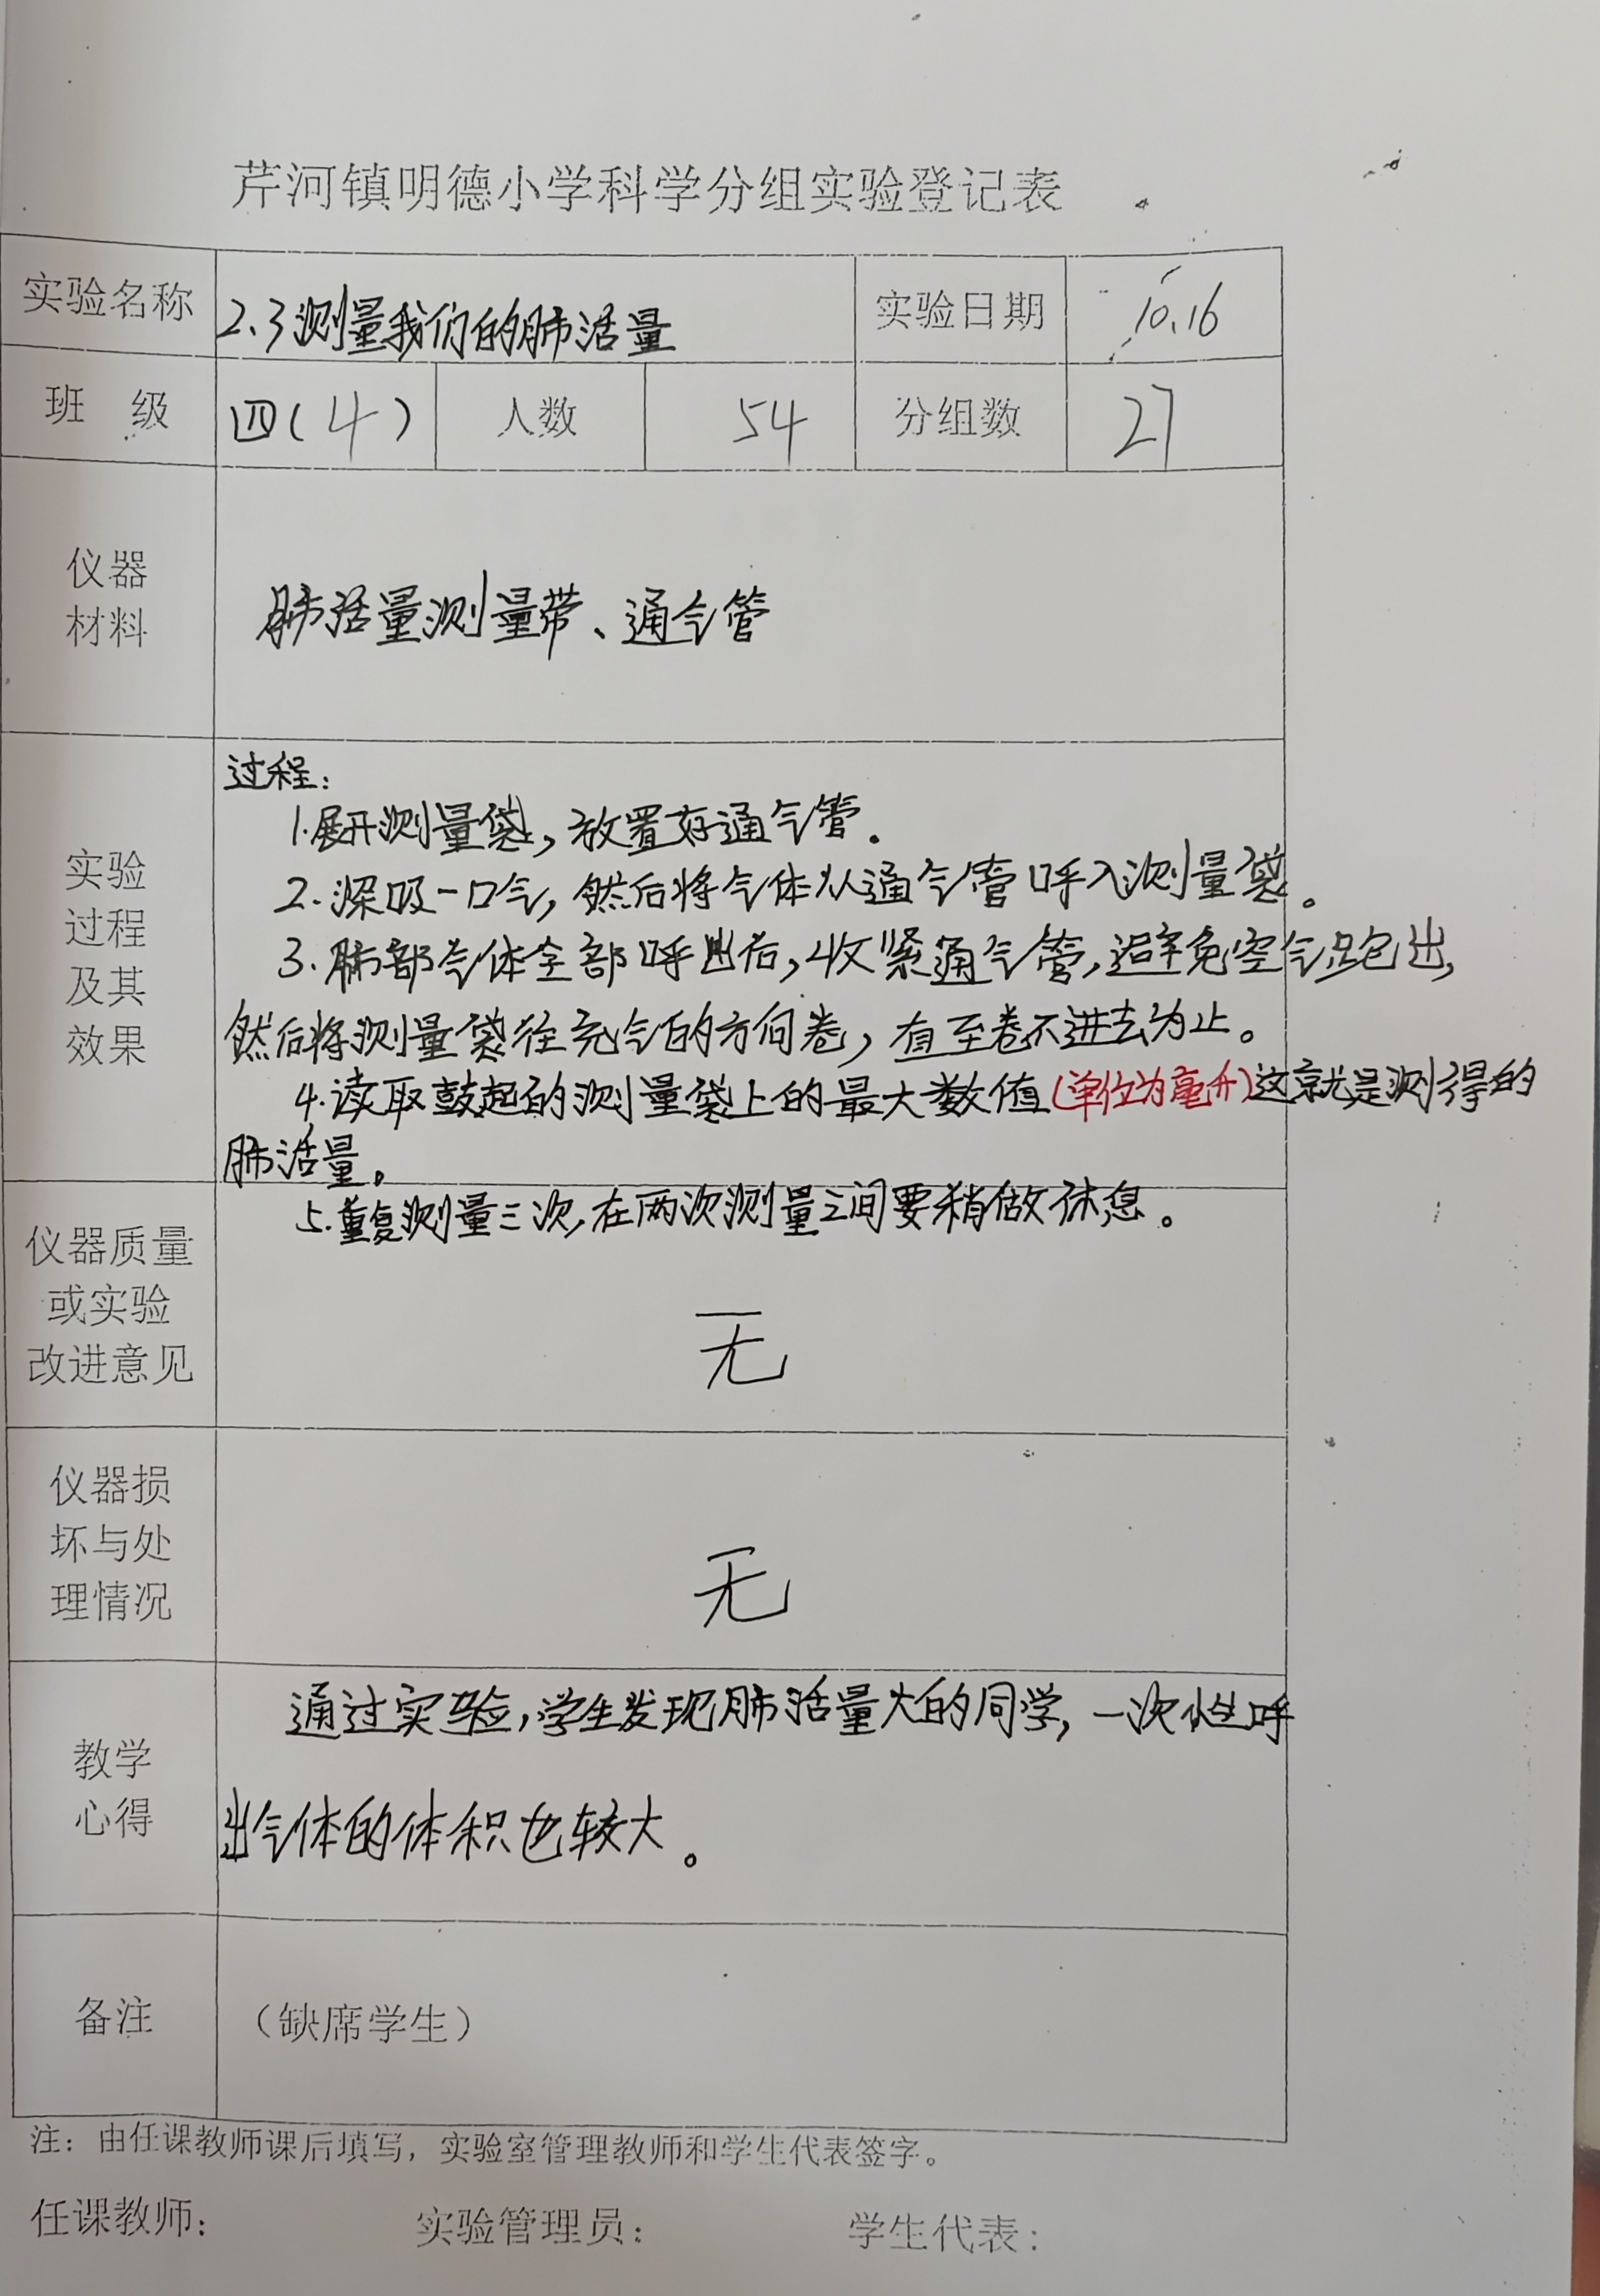 芹河镇明德小学科学分组实验登记表
实验名称 2.3测量我们的肺活量 实验日期 10.16
班 级 四(4) 人数 54 分组数 27
仪器
材料
肺活量测量带、通气管
实验
过程
及其
效果
过程:
1.展开测量袋,放置好通气管.
2.深吸一口气,然后将气体从通气管呼入测量袋。
3.肺部气体全部呼出后,收紧通气管,避免空气跑出,
然后将测量袋往充气的方向卷,直至卷不进去为止。
4.读取鼓起的测量袋上的最大数值(单位为毫升)这就是测得的
肺活量。
5.重复测量三次,在两次测量之间要稍做休息。
仪器质量
或实验
改进意见
无
仪器损
坏与处
理情况
无
教学
心得
通过实验,学生发现肺活量大的同学,一次性呼
出气体的体积也较大。
备注 (缺席学生)
注:由任课教师课后填写,实验室管理教师和学生代表签字。
任课教师: 实验管理员: 学生代表: